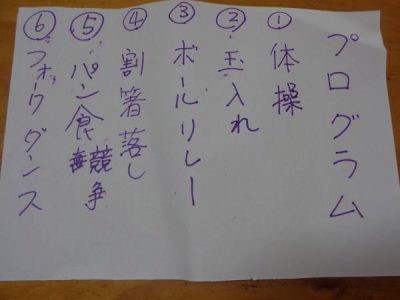 プログラム
① 体操
② 玉入れ
③ ボールリレー
④ 割箸落し
⑤ パン食競争
⑥ フォークダンス